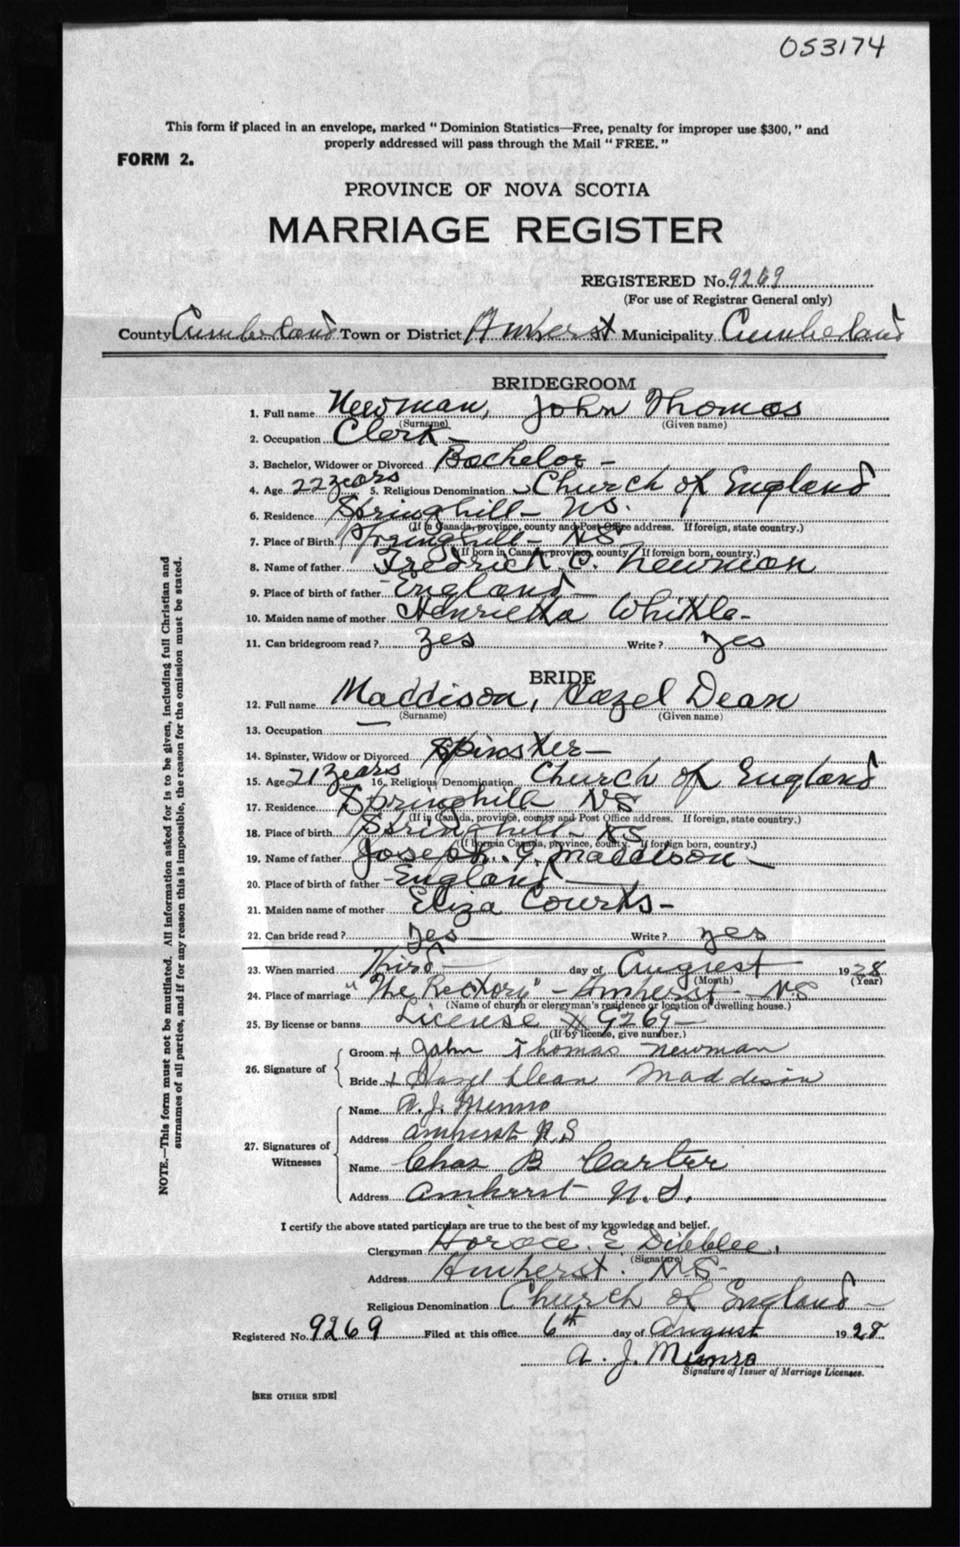 053174
This form if placed in an envelope, marked "Dominion Statistics—Free, penalty for improper use $300," and
properly addressed will pass through the Mail "FREE."
FORM 2.
PROVINCE OF NOVA SCOTIA
MARRIAGE REGISTER
REGISTERED No. 9269
(For use of Registrar General only)
County Cumberland Town or District Amherst Municipality Cumberland
BRIDEGROOM
1. Full name Newman, John Thomas
(Surname) (Given name)
2. Occupation Clerk —
3. Bachelor, Widower or Divorced Bachelor —
4. Age 22 years 5. Religious Denomination Church of England
6. Residence Springhill — NS.
(If in Canada, province, county and Post Office address. If foreign, state country.)
7. Place of Birth Springhill — NS —
(If born in Canada, province, county. If foreign born, country.)
8. Name of father Fredrick C. Newman
9. Place of birth of father England —
10. Maiden name of mother Henrietta Whittle —
11. Can bridegroom read? yes Write? yes
BRIDE
12. Full name Maddison, Hazel Dean
(Surname) (Given name)
13. Occupation —
14. Spinster, Widow or Divorced Spinster —
15. Age 21 years 16. Religious Denomination Church of England
17. Residence Springhill NS
(If in Canada, province, county and Post Office address. If foreign, state country.)
18. Place of birth Springhill — NS
(If born in Canada, province, county. If foreign born, country.)
19. Name of father Joseph. Maddison —
20. Place of birth of father England —
21. Maiden name of mother Eliza Courts —
22. Can bride read? yes — Write? yes
23. When married Third — day of August 1928
(Month) (Year)
24. Place of marriage "The Rectory" — Amherst — NS
(Name of church or clergyman's residence or location of dwelling house.)
25. By license or banns License # 9269 —
(If by license, give number.)
26. Signature of
Groom + John Thomas Newman
Bride + Hazel Dean Maddison
27. Signatures of Witnesses
Name A. J. Munro
Address Amherst N.S
Name Chas B Carter
Address Amherst N.S.
I certify the above stated particulars are true to the best of my knowledge and belief.
Clergyman Horace E Dibblee.
(Signature)
Address Amherst. NS —
Religious Denomination Church of England —
Registered No. 9269 Filed at this office 6th day of August 1928
A. J. Munro
Signature of Issuer of Marriage Licenses.
[SEE OTHER SIDE]
NOTE.—This form must not be mutilated. All information asked for is to be given, including full Christian and
surnames of all parties, and if for any reason this is impossible, the reason for the omission must be stated.